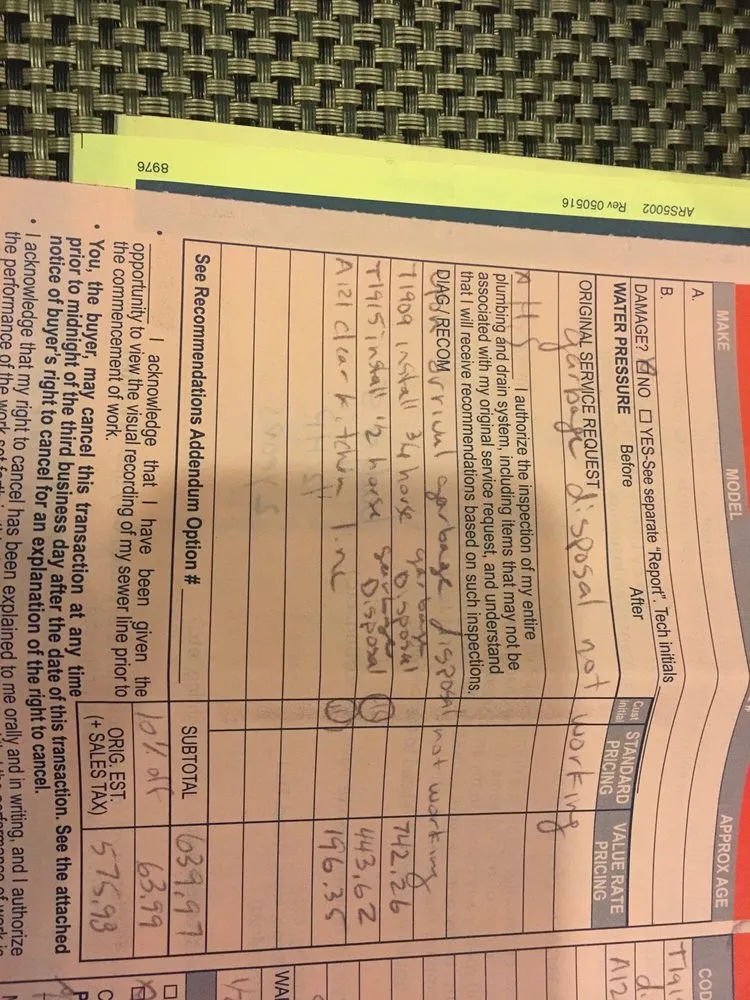 8976
ARS5002 Rev 050516
MAKE MODEL APPROX AGE
A.
B.
DAMAGE? NO YES-See separate "Report". Tech initials
WATER PRESSURE Before After
Cust Initial STANDARD PRICING VALUE RATE PRICING
ORIGINAL SERVICE REQUEST
garbage disposal not working
I authorize the inspection of my entire
plumbing and drain system, including items that may not be
associated with my original service request, and understand
that I will receive recommendations based on such inspections.
DIAG/RECOM
upon arrival garbage disposal not working
T1909 install 3/4 horse garbage Disposal 742.26
T1915 install 1/2 horse garbage Disposal 443.62
A121 clear kitchen line 196.35
See Recommendations Addendum Option #
SUBTOTAL 639.97
10% off 63.99
ORIG. EST. (+ SALES TAX) 575.98
• I acknowledge that I have been given the
opportunity to view the visual recording of my sewer line prior to
the commencement of work.
• You, the buyer, may cancel this transaction at any time
prior to midnight of the third business day after the date of this transaction. See the attached
notice of buyer's right to cancel for an explanation of the right to cancel.
• I acknowledge that my right to cancel has been explained to me orally and in writing, and I authorize
the performance of the work set forth
COD
T191
A12
WAR